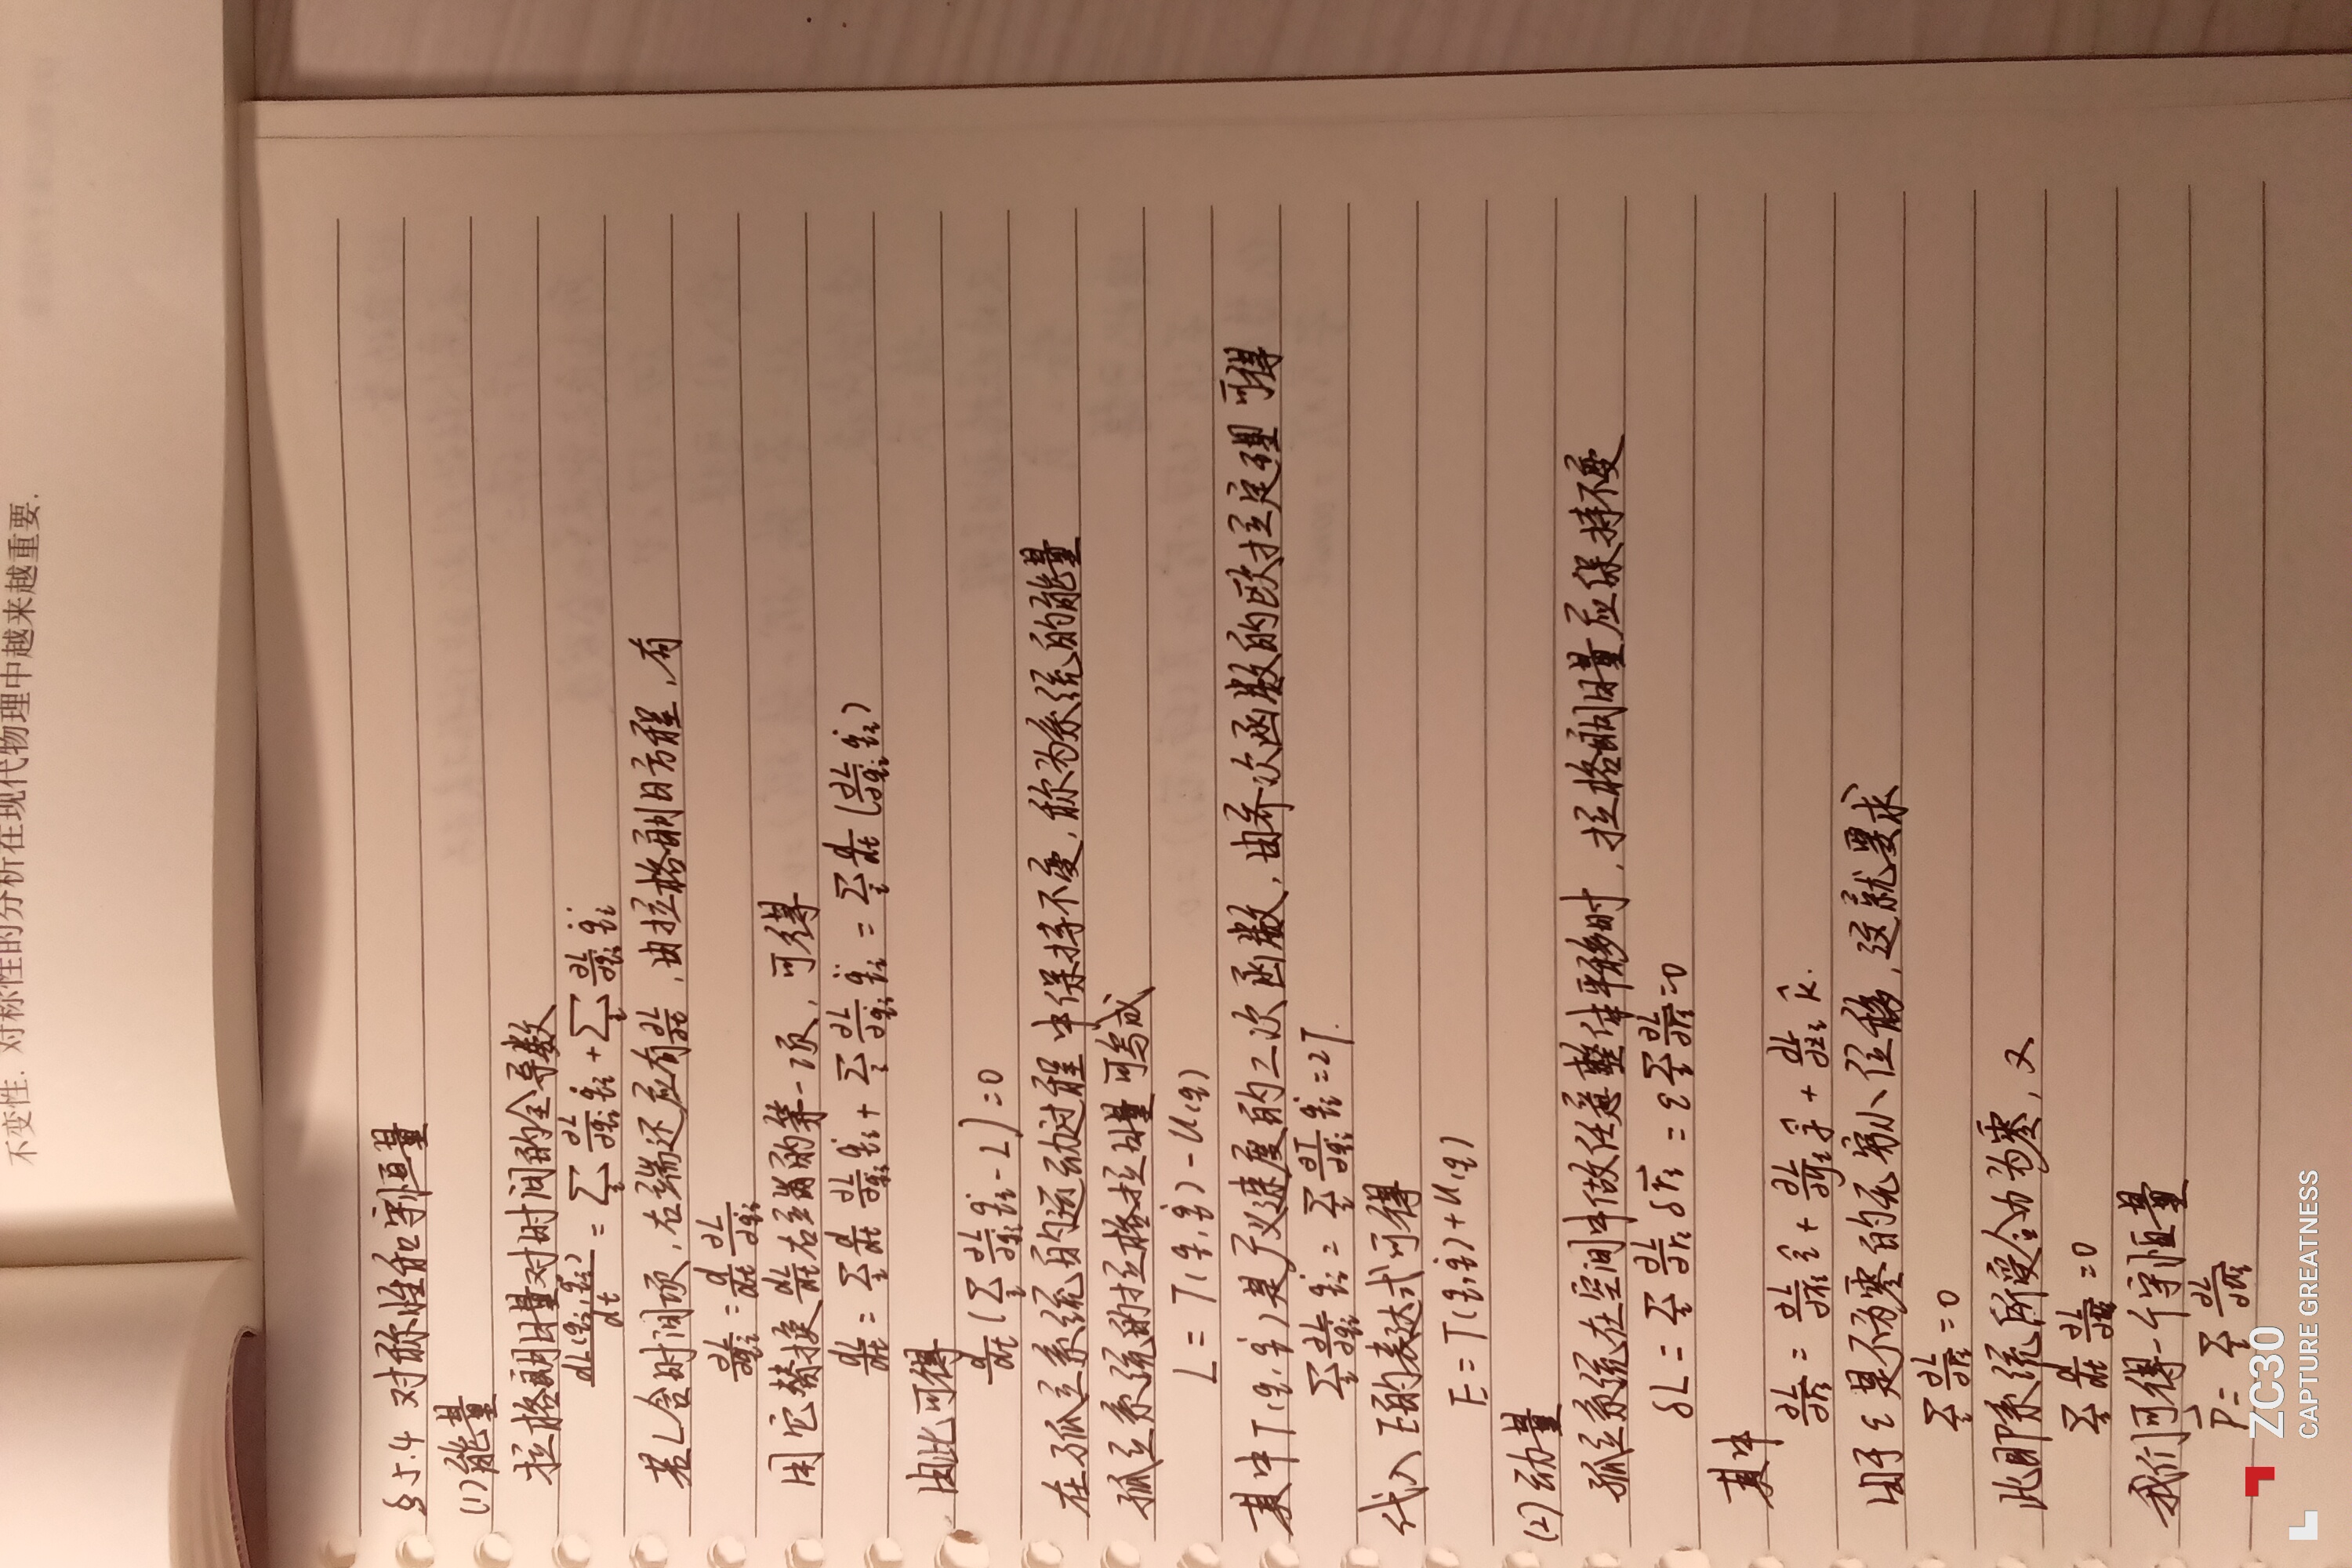 不变性. 对称性的分析在现代物理中越来越重要.
§5.4 对称性和守恒量
(1)能量
拉格朗日量对时间的全导数
dL(qᵢ,q̇ᵢ)/dt = Σᵢ ∂L/∂qᵢ q̇ᵢ + Σᵢ ∂L/∂q̇ᵢ q̈ᵢ
若L含时间项,右端还应有∂L/∂t,由拉格朗日方程,有
∂L/∂qᵢ = d/dt ∂L/∂q̇ᵢ
用它替换dL/dt右端的第一项,可得
dL/dt = Σᵢ d/dt ∂L/∂q̇ᵢ q̇ᵢ + Σᵢ ∂L/∂q̇ᵢ q̈ᵢ = Σᵢ d/dt (∂L/∂q̇ᵢ q̇ᵢ)
由此可得
d/dt (Σᵢ ∂L/∂q̇ᵢ q̇ᵢ - L) = 0
在孤立系统的运动过程中保持不变,称为系统的能量
孤立系统的拉格拉日量可写成
L = T(q,q̇) - U(q)
其中T(q,q̇)是广义速度的二次函数,由齐次函数的欧拉定理可得
Σᵢ ∂L/∂q̇ᵢ q̇ᵢ = Σᵢ ∂T/∂q̇ᵢ q̇ᵢ = 2T.
代入E的表达式可得
E = T(q,q̇) + U(q)
(2)动量
孤立系统在空间中做任意整体平移时,拉格朗日量应保持不变
δL = Σᵢ ∂L/∂r⃗ᵢ δr⃗ᵢ = ε Σᵢ ∂L/∂r⃗ᵢ = 0
其中
∂L/∂r⃗ᵢ = ∂L/∂xᵢ î + ∂L/∂yᵢ ĵ + ∂L/∂zᵢ k̂.
由于ε是不为零的无穷小位移,这就要求
Σᵢ ∂L/∂r⃗ᵢ = 0
此即系统所受合力为零,又
Σᵢ d/dt ∂L/∂v⃗ᵢ = 0
我们可得一个守恒量
P⃗ = Σᵢ ∂L/∂v⃗ᵢ
ZC30
CAPTURE GREATNESS